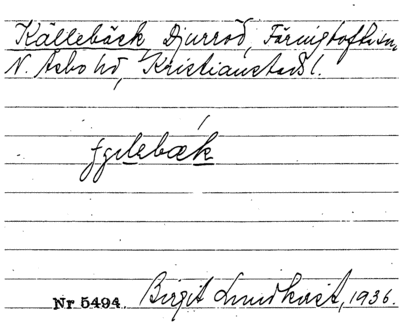 Källebäck, Djurröd, Färingtofta sn,
N. Åsbo hd, Kristianstads l.
Nr 5494. Birgit Lundkvist, 1936.